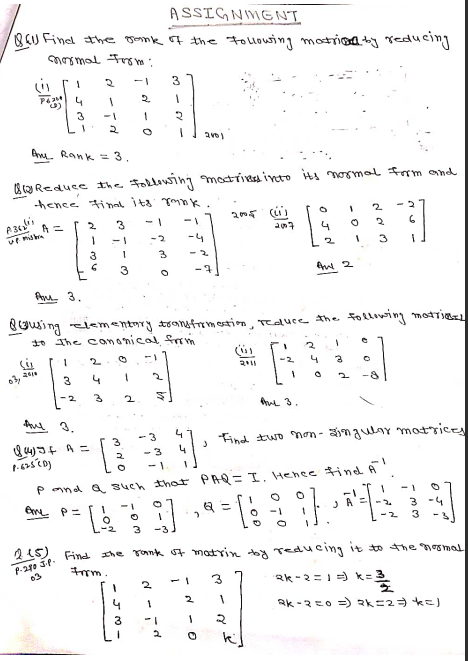 ASSIGNMENT
Q(1) Find the rank of the following matrices by reducing
normal form:
(i)
1 2 -1 3
4 1 2 1
3 -1 1 2
1 2 0 1
2001
Ans Rank = 3.
Q(2) Reduce the following matrices into its normal form and
hence find its rank.
(i) A = 2005 (ii) 2007
2 3 -1 -1
1 -1 -2 -4
3 1 3 -2
6 3 0 -7
0 1 2 -2
4 0 2 6
2 1 3 1
Ans 2
Ans 3.
Q(3) Using elementary transformation, reduce the following matrices
to the canonical form
(i) 2010
1 2 0 -1
3 4 1 2
-2 3 2 5
(ii) 2011
1 2 1 0
-2 4 3 0
1 0 2 -8
Ans 3.
Ans 3.
Q(4) If A = , Find two non-singular matrices
3 -3 4
2 -3 4
0 -1 1
P and Q such that PAQ = I. Hence find A⁻¹
Ans P = , Q = , A⁻¹ =
1 -1 0
0 0 1
-2 3 -3
1 0 0
0 -1 1
0 0 1
1 -1 0
-2 3 -4
-2 3 -3
Q(5) Find the rank of matrix by reducing it to the normal
form.
1 2 -1 3
4 1 2 1
3 -1 1 2
1 2 0 k
2k-2=1 ⇒ k=3/2
2k-2=0 ⇒ 2k=2 ⇒ k=1